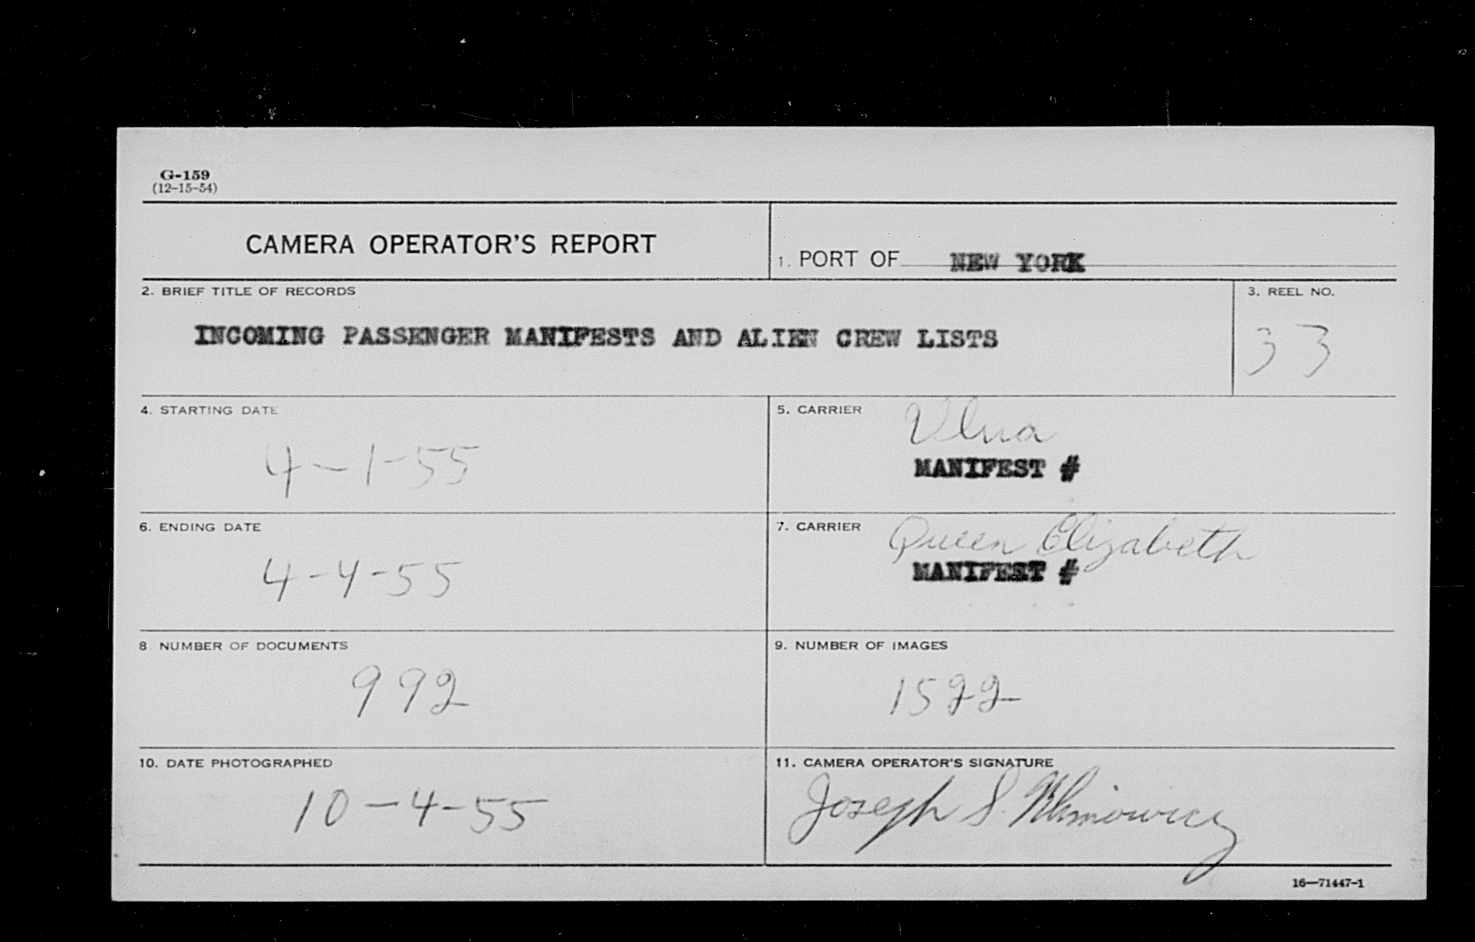 G-159
(12-15-54)
CAMERA OPERATOR'S REPORT
1. PORT OF NEW YORK
2. BRIEF TITLE OF RECORDS
3. REEL NO.
INCOMING PASSENGER MANIFESTS AND ALIEN CREW LISTS
33
4. STARTING DATE
5. CARRIER
4-1-55
MANIFEST #
6. ENDING DATE
7. CARRIER Queen Elizabeth
4-4-55
MANIFEST #
8 NUMBER OF DOCUMENTS
9. NUMBER OF IMAGES
992
1522
10. DATE PHOTOGRAPHED
11. CAMERA OPERATOR'S SIGNATURE
10-4-55
Joseph S.
16—71447-1